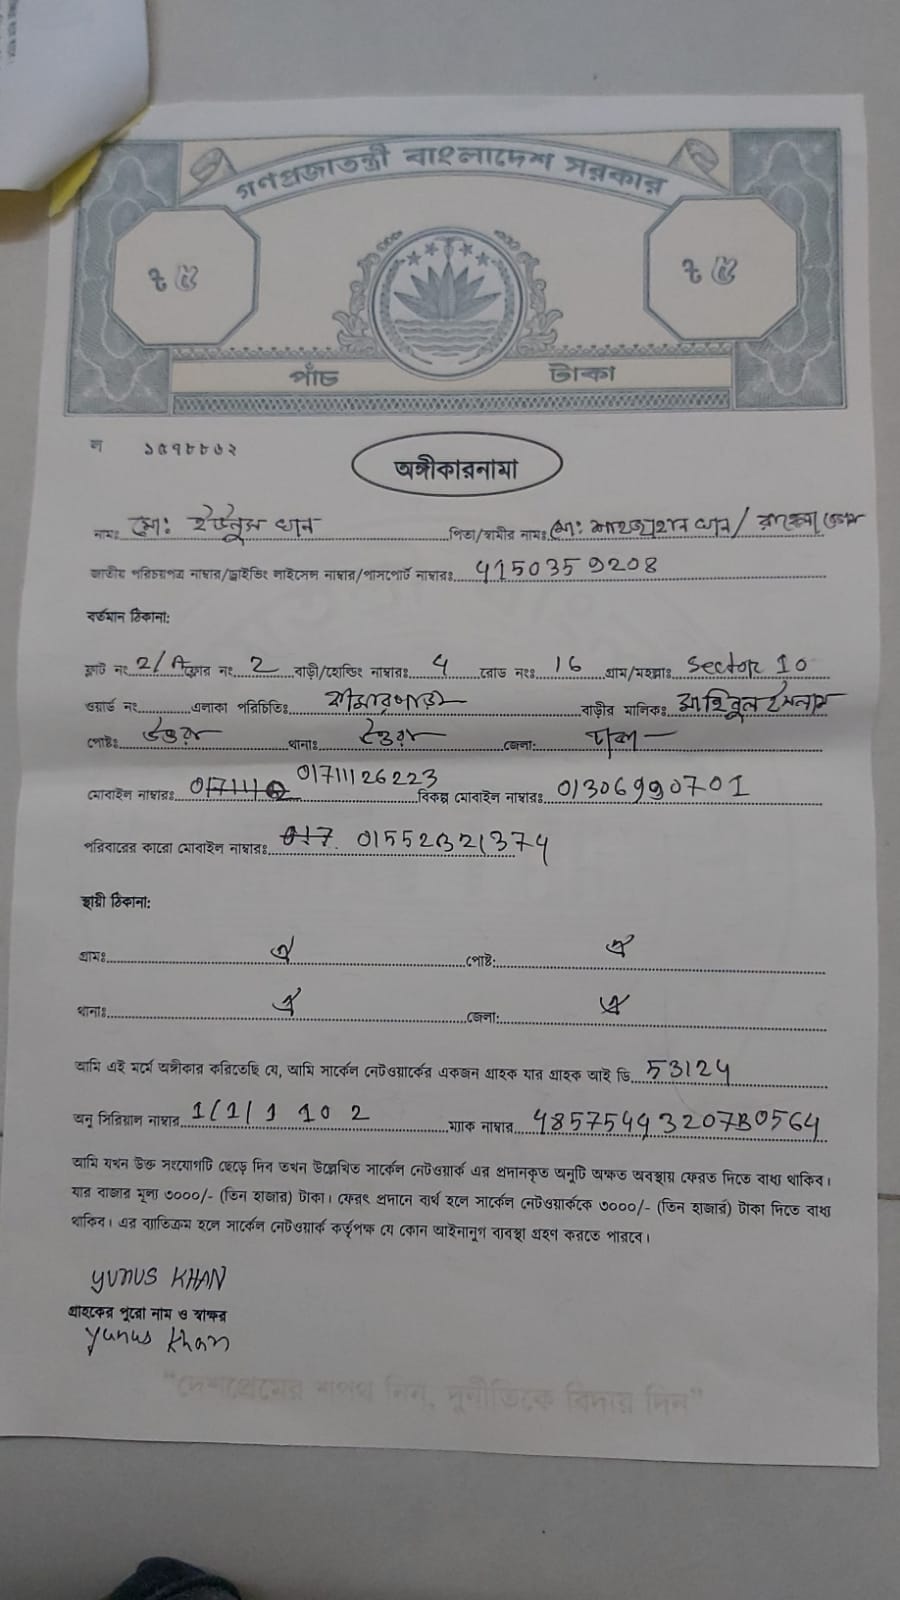 গণপ্রজাতন্ত্রী বাংলাদেশ সরকার
৳ ৫ ৳ ৫
পাঁচ টাকা
ল ১৫৭৮৮৬২
অঙ্গীকারনামা
নামঃ মো: ইউনুস খান পিতা/স্বামীর নামঃ মো: শাহজাহান খান /
জাতীয় পরিচয়পত্র নাম্বার/ড্রাইভিং লাইসেন্স নাম্বার/পাসপোর্ট নাম্বারঃ 4150359208
বর্তমান ঠিকানা:
ফ্লাট নং 2/A ফ্লোর নং 2 বাড়ী/হোল্ডিং নাম্বারঃ 4 রোড নংঃ 16 গ্রাম/মহল্লাঃ Sector 10
ওয়ার্ড নং এলাকা পরিচিতিঃ কামারপাড়া বাড়ীর মালিকঃ ইসলাম
পোষ্টঃ উত্তরা থানাঃ উত্তরা জেলা: ঢাকা
মোবাইল নাম্বারঃ 01711126223 বিকল্প মোবাইল নাম্বারঃ 01306990701
পরিবারের কারো মোবাইল নাম্বারঃ 01552321374
স্থায়ী ঠিকানা:
গ্রামঃ ঐ পোষ্ট: ঐ
থানাঃ ঐ জেলা: ঐ
আমি এই মর্মে অঙ্গীকার করিতেছি যে, আমি সার্কেল নেটওয়ার্কের একজন গ্রাহক যার গ্রাহক আই ডি 53124
অনু সিরিয়াল নাম্বার 1/1/1 102 ম্যাক নাম্বার 485754493207B0564
আমি যখন উক্ত সংযোগটি ছেড়ে দিব তখন উল্লেখিত সার্কেল নেটওয়ার্ক এর প্রদানকৃত অনুটি অক্ষত অবস্থায় ফেরত দিতে বাধ্য থাকিব।
যার বাজার মূল্য ৩০০০/- (তিন হাজার) টাকা। ফেরৎ প্রদানে ব্যর্থ হলে সার্কেল নেটওয়ার্ককে ৩০০০/- (তিন হাজার) টাকা দিতে বাধ্য
থাকিব। এর ব্যতিক্রম হলে সার্কেল নেটওয়ার্ক কর্তৃপক্ষ যে কোন আইনানুগ ব্যবস্থা গ্রহণ করতে পারবে।
YUNUS KHAN
গ্রাহকের পুরো নাম ও স্বাক্ষর
Yunus Khan
"দেশপ্রেমের শপথ নিন, দুর্নীতিকে বিদায় দিন"